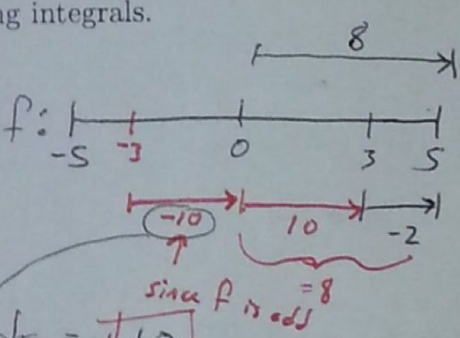 ng integrals.
8
f:
-5 -3 0 3 5
-10 10 -2
=8
since f is odd